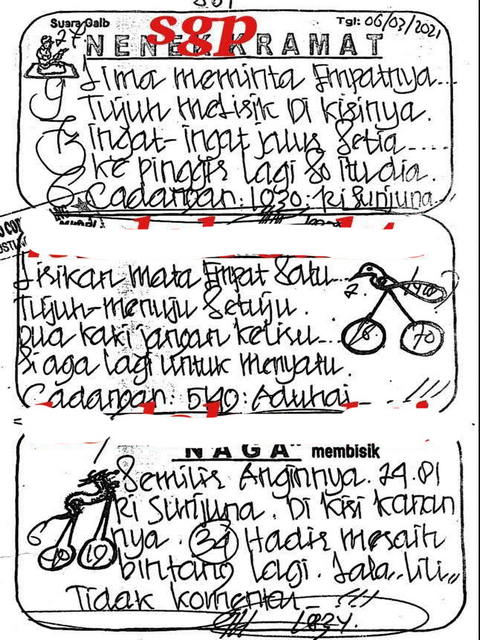 Suara Galb
Tgl: 06/03/2021
NENEK KRAMAT
sgp
Lima meminta Empatnya...
Tujuh melisik Di kisinya.
ingat-ingat jalur Setia....
ke pinggir lagi So itu dia.
Cadangan: 1930: Ki Sunjuna
Sisikan mata Empat Satu...
Tujuh-menuju Setuju.
Dua kaki jangan kelisu...
Siaga lagi untuk menyatu.
Cadangan: 5140: Aduhai
70
NAGA membisik
Semilir Anginnya. 24.01
Ki Sunjuna. Di kisi kanan
nya. 34 Hadis mesaih
bintang lagi. Lala..lili,,
Tidak komentar
19